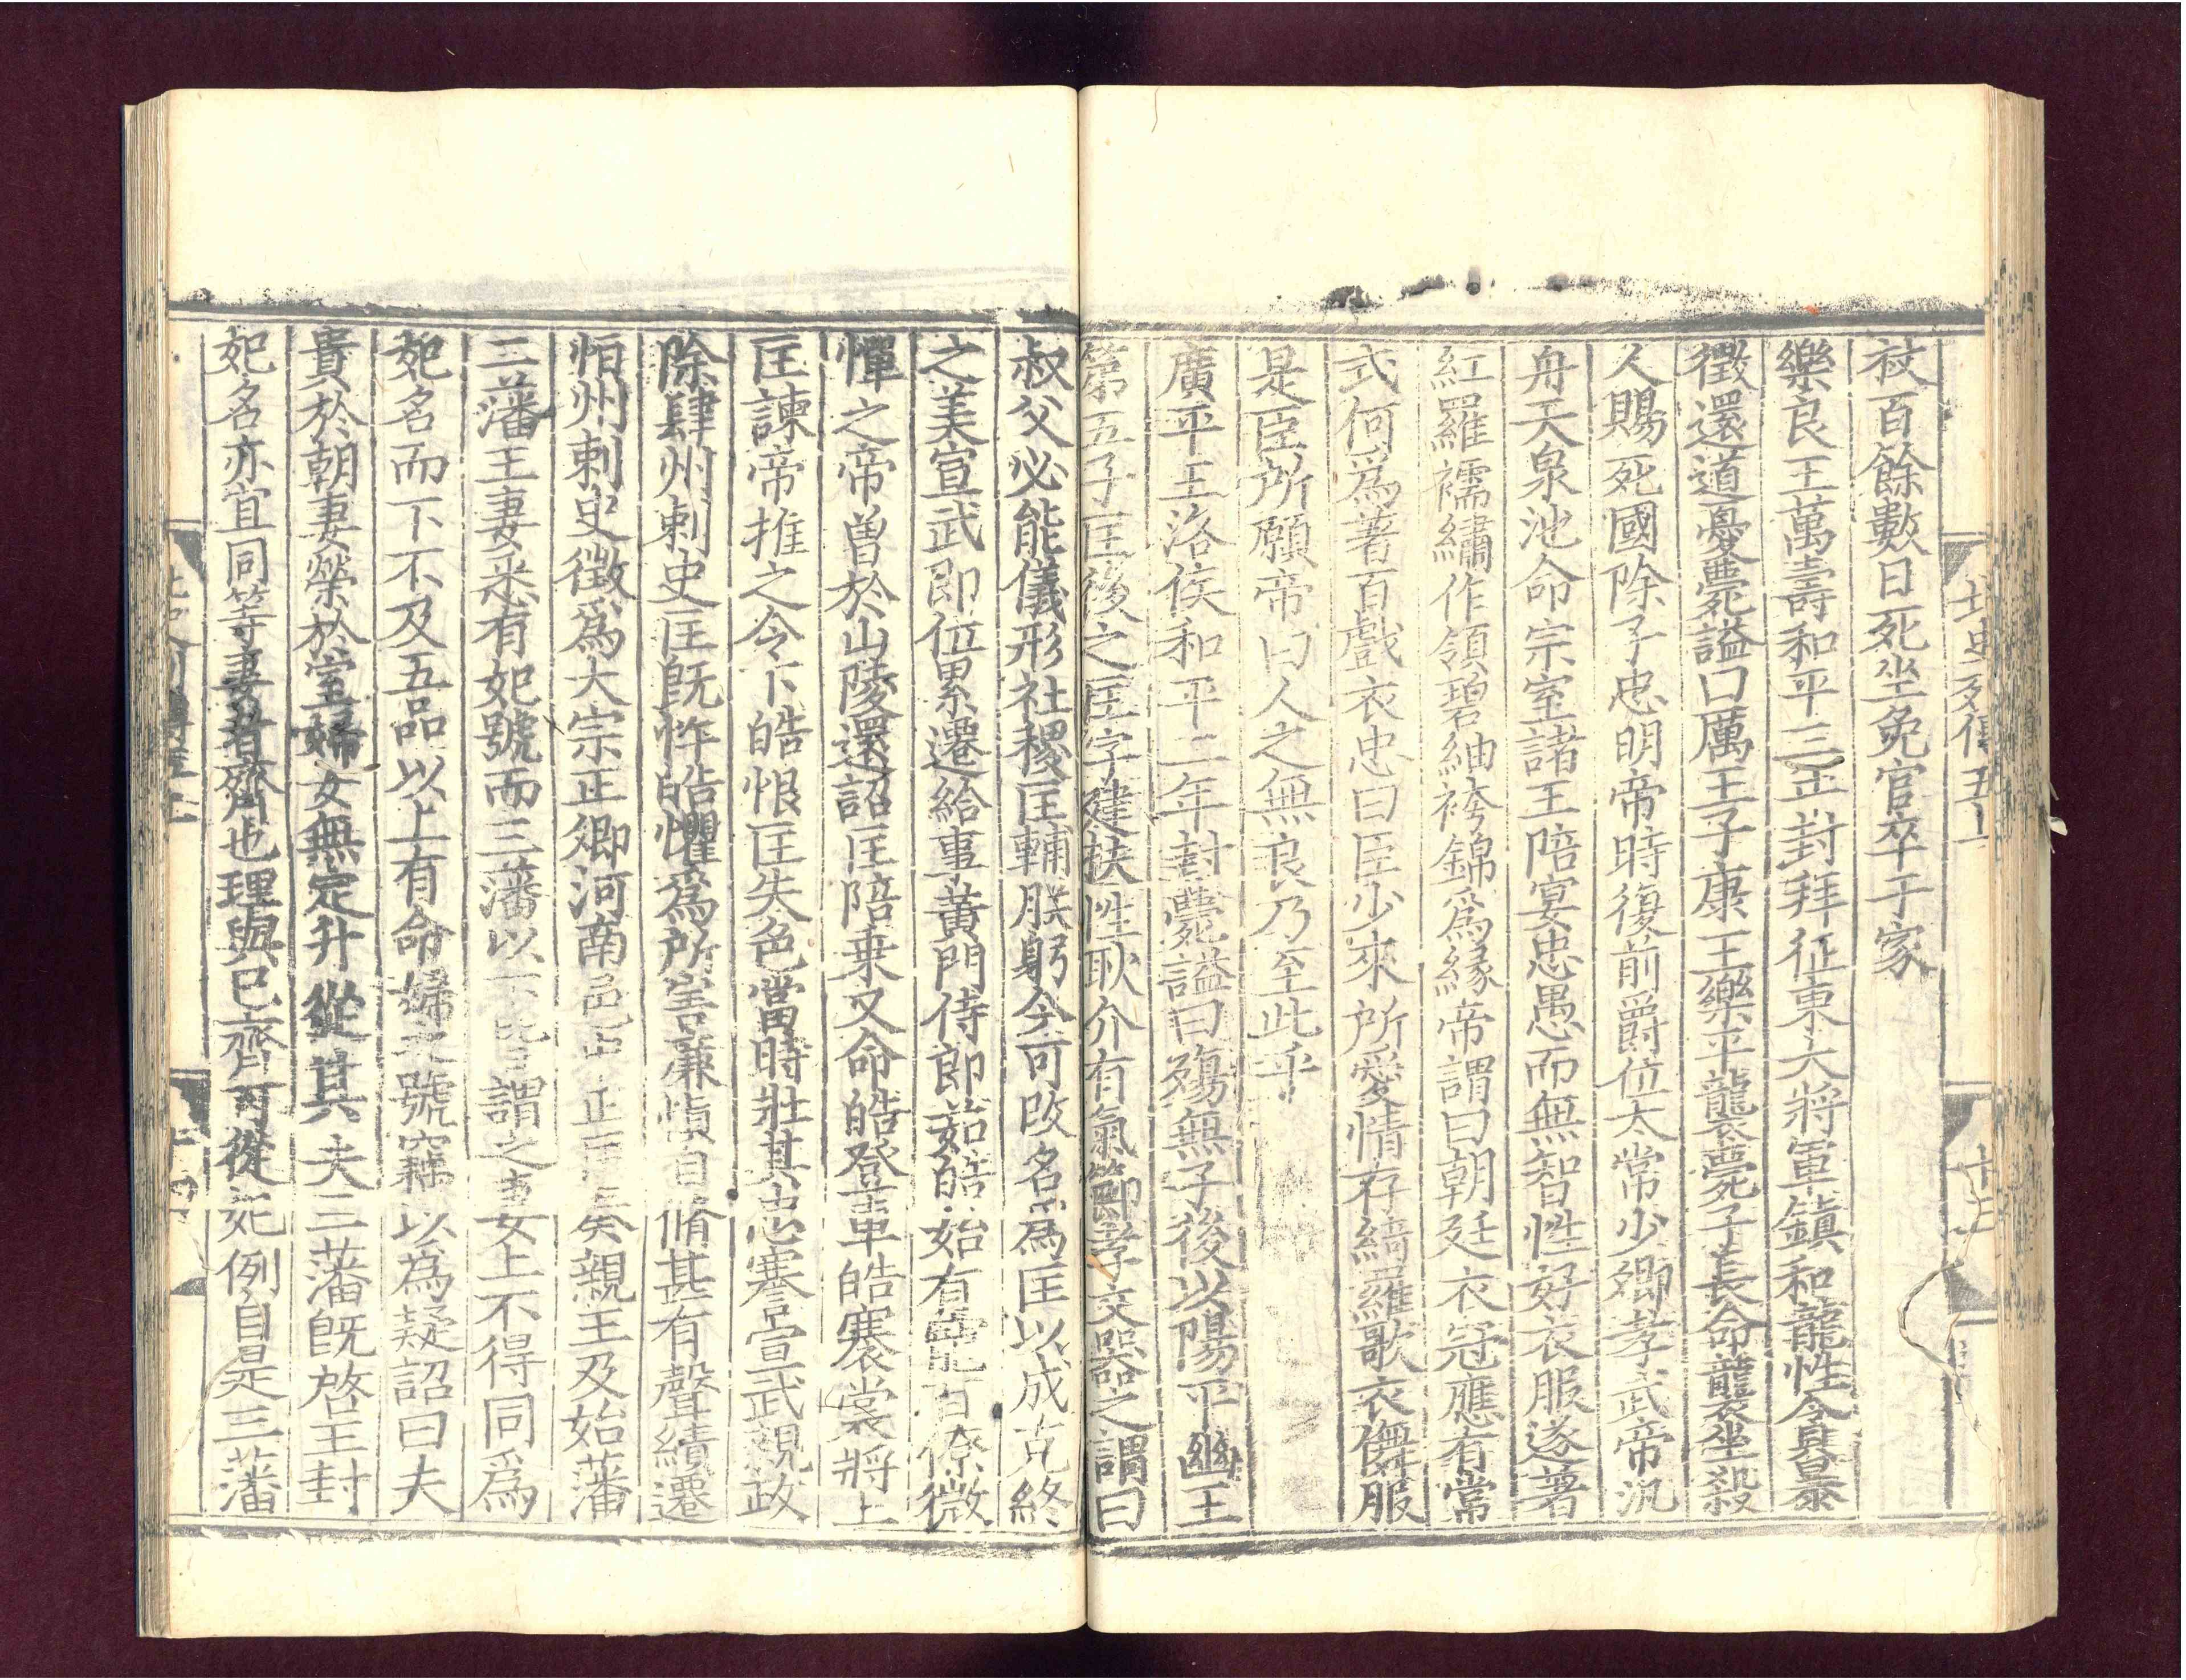 北史列傳五
十三
杖百餘數日死坐免官卒于家
樂良王萬壽和平三年封拜征東大將軍鎮和龍性貪暴
徵還道憂薨謚曰厲王子康王樂平襲薨子長命襲坐殺
人賜死國除子忠明帝時復前爵位太常少卿孝武帝汎
舟天泉池命宗室諸王陪宴忠愚而無智性好衣服遂著
紅羅襦繡作領碧紬袴錦爲緣帝謂曰朝廷衣冠應有常
式何爲著百戲衣忠曰臣少來所愛情存綺羅歌衣儛服
是臣所願帝曰人之無良乃至此乎
廣平王洛侯和平二年封薨謚曰殤無子後以陽平幽王
第五子匡後之匡字建扶性耿介有氣節孝文器之謂曰
叔父必能儀形社稷匡輔朕躬今可改名爲匡以成克終
之美宣武即位累遷給事黃門侍郎茹皓始有寵百僚微
憚之帝曾於山陵還詔匡陪乘又命皓登車皓褰裳將上
匡諫帝推之令下皓恨匡失色當時壯其忠謇宣武親政
除肆州刺史匡旣忤皓懼爲所害廉愼自脩甚有聲績遷
恒州刺史徵爲大宗正卿河南邑中正匡奏親王及始藩
二藩王妻悉有妃號而三藩以下皆謂之妻上不得同爲
妃名而下不及五品以上有命婦之號竊以爲疑詔曰夫
貴於朝妻榮於室婦女無定升從其夫三藩旣啓王封
妃名亦宜同等妻者齊也理與己齊可從妃例自是三藩